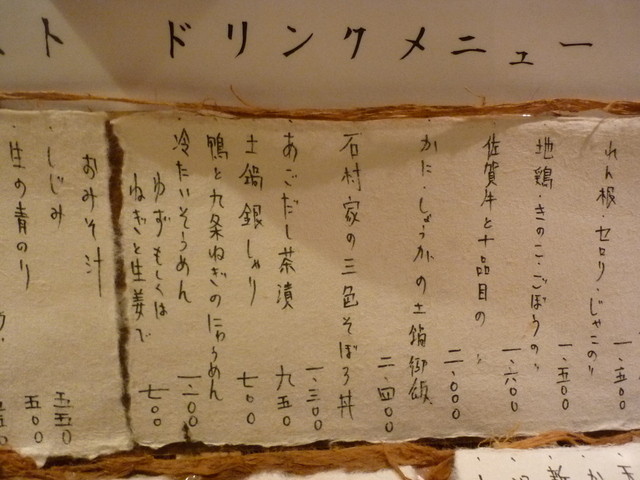 スト ドリンクメニュー
れん根・セロリ・じゃこの〃
一、五〇〇
地鶏・きのこ・ごぼうの〃
一、五〇〇
佐賀牛と十品目の〃
一、六〇〇
かに・しょうがの土鍋御飯
二、〇〇〇
二、四〇〇
石村家の三色そぼろ丼
一、三〇〇
あごだし茶漬
九五〇
土鍋銀しゃり
七〇〇
鴨と九条ねぎのにゅうめん
一、一〇〇
冷たいそうめん
ゆずもしくは
ねぎと生姜で
七〇〇
おみそ汁
・しじみ
五五〇
・生の青のり
五〇〇